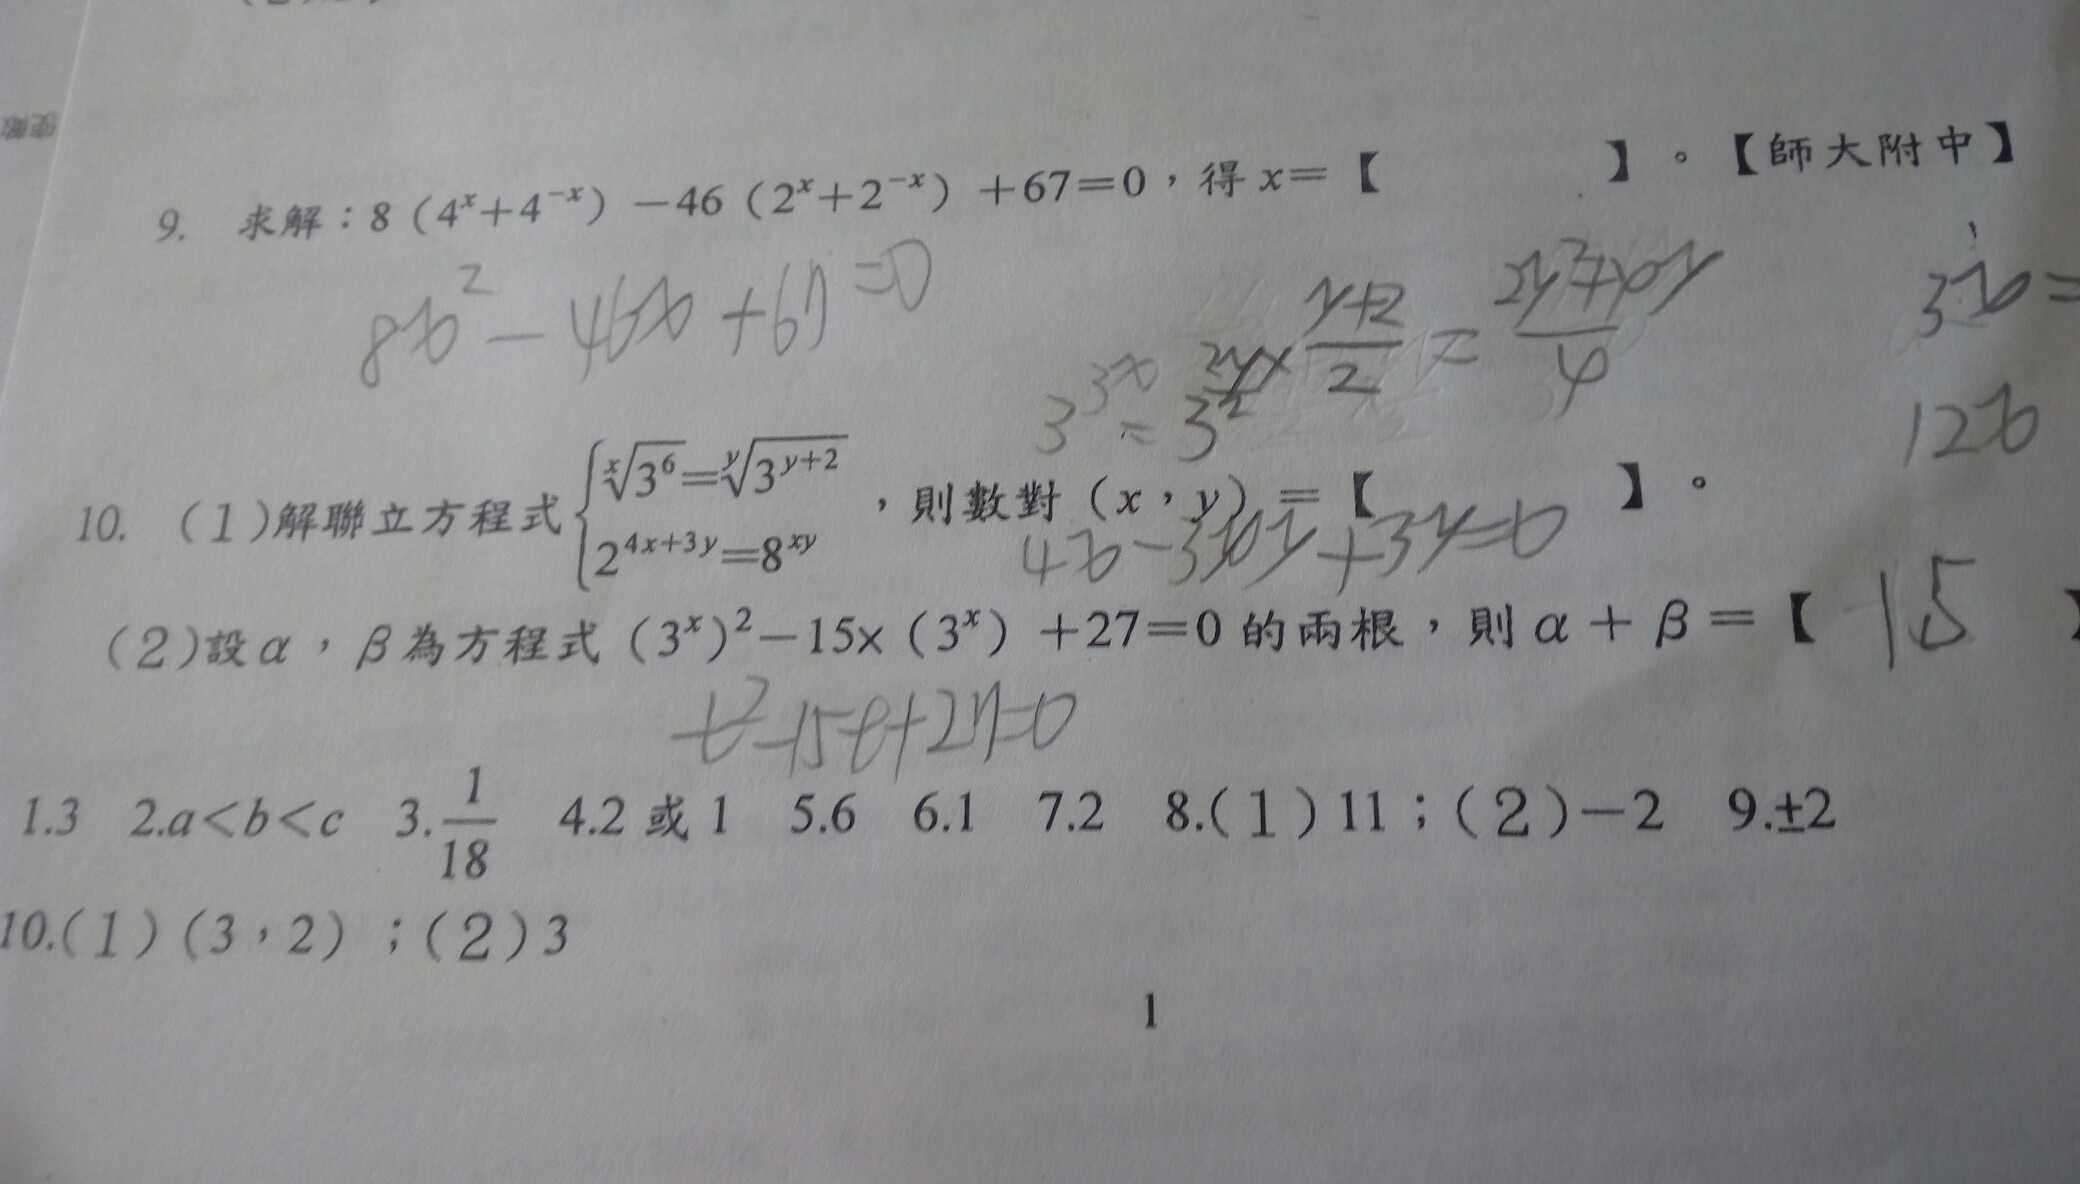 9. 求解：8（4ˣ＋4⁻ˣ）－46（2ˣ＋2⁻ˣ）＋67＝0，得 x＝【　　　】。【師大附中】
8x² － 46x ＋67＝0
3^{3x} ＝ 3^{2y/2} × (y+2)/2 ＝ (2y²+xy)/4
3x＝
12x
10. （1）解聯立方程式 { \sqrt[x]{3^6}＝\sqrt[y]{3^{y+2}} , 2^{4x+3y}＝8^{xy} ，則數對（x，y）＝【　　　】。
4x－3xy＋3y＝0
（2）設α，β為方程式（3ˣ）²－15×（3ˣ）＋27＝0 的兩根，則 α＋β＝【 15 】
t²－15t＋27＝0
1.3　2.a＜b＜c　3.1/18　4.2 或 1　5.6　6.1　7.2　8.（1）11；（2）－2　9.±2
10.（1）（3，2）；（2）3
1